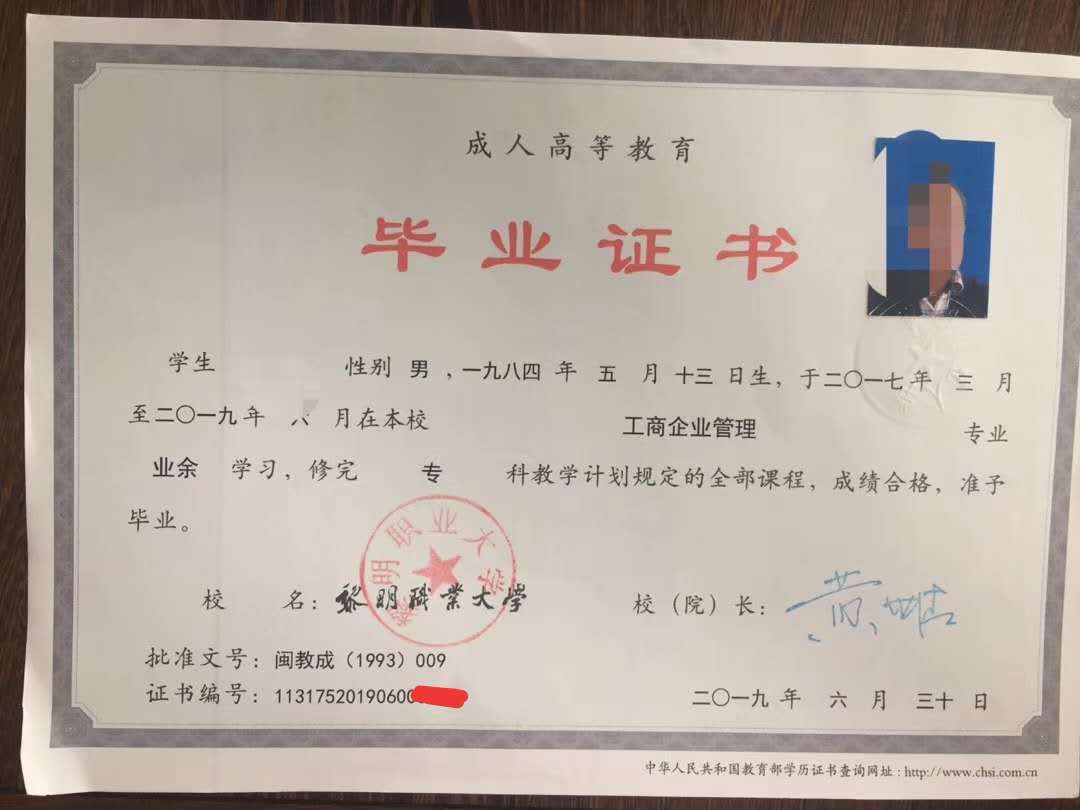 成人高等教育
毕业证书
学生 性别 男 ,一九八四 年 五 月 十三 日生，于二〇一七年 三 月
至二〇一九年 月在本校 工商企业管理 专业
业余 学习，修完 专 科教学计划规定的全部课程，成绩合格，准予
毕业。
黎明职业大学
校 名：黎明職業大學 校（院）长：
批准文号：闽教成（1993）009
证书编号：1131752019060 二〇一九 年 六 月 三十 日
中华人民共和国教育部学历证书查询网址：http://www.chsi.com.cn